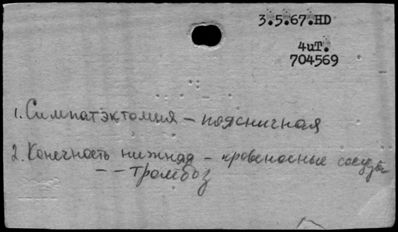 3.5.67.HD
4иТ.
704569
1. Симпатэктомия – поясничная
2. Конечность нижняя – кровеносные сосуды
– – тромбоз